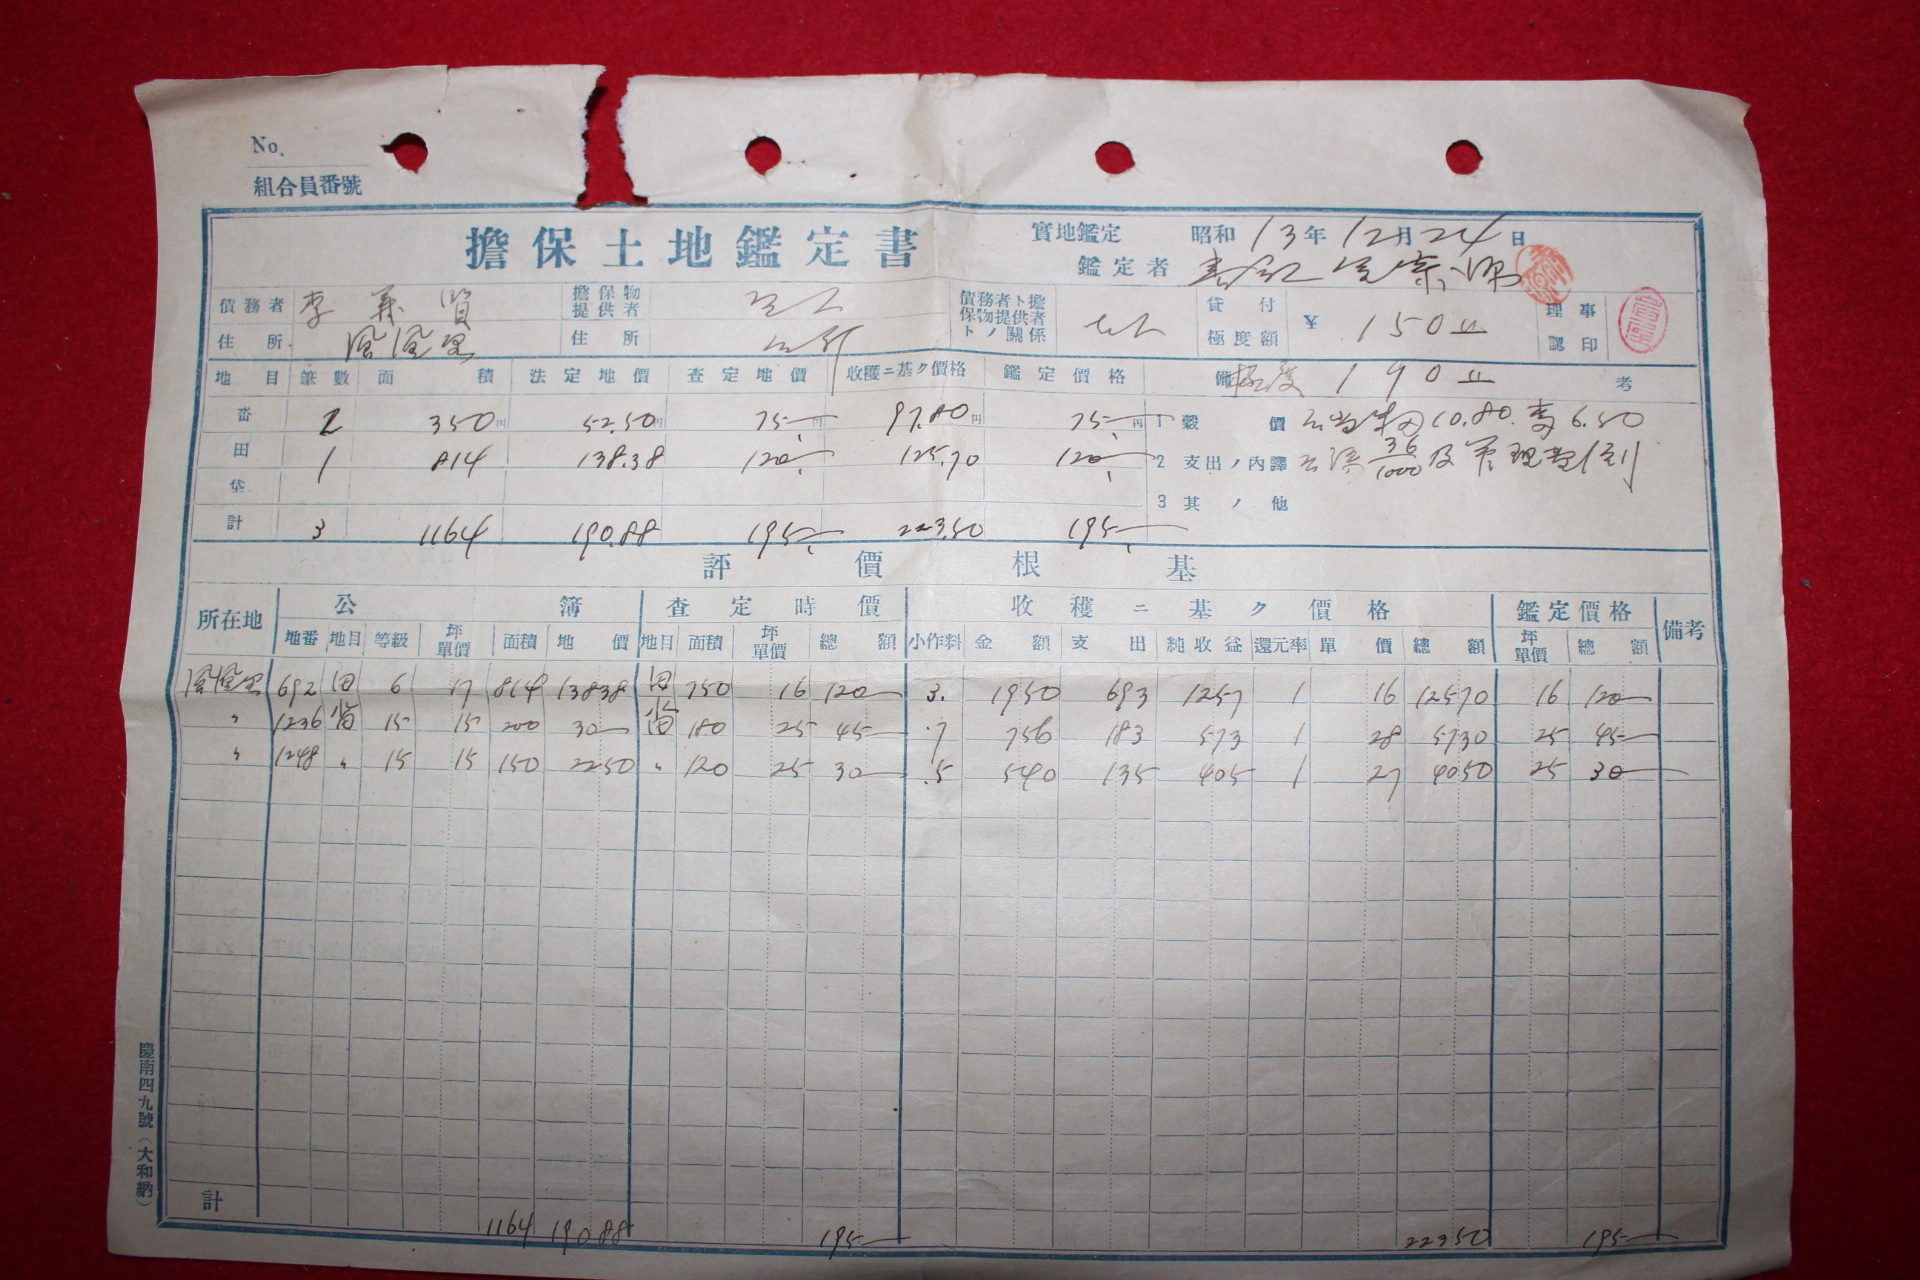 No.
組合員番號
擔保土地鑑定書
實地鑑定 昭和13年12月24日
鑑定者
債務者 李 賢 擔保物提供者 債務者ト擔保物提供者トノ關係 貸付極度額 ¥ 150 理事認印
住所 鳳凰里 住所
地目 筆數 面積 法定地價 査定地價 收穫ニ基ク價格 鑑定價格 備考 極度 190
畓 2 350 52.50円 75 97.80円 75円 1 穀價 10.80. 6.50
田 1 814 138.38 120 125.70 120 2 支出ノ內譯 36/1000 及 管理費1割
垈 3 其ノ他
計 3 1164 190.88 195 223.50 195
評價根基
所在地 公簿 査定時價 收穫ニ基ク價格 鑑定價格 備考
地番 地目 等級 坪單價 面積 地價 地目 面積 坪單價 總額 小作料 金額 支出 純收益 還元率 單價 總額 坪單價 總額
鳳凰里 692 田 6 17 814 13838 田 750 16 120 3. 1950 693 1257 1 16 12570 16 120
〃 1236 畓 15 15 200 30 畓 180 25 45 .7 756 183 573 1 28 5730 25 45
〃 1248 〃 15 15 150 2250 〃 120 25 30 .5 540 135 405 1 27 4050 25 30
計 1164 190.88 195 22350 195
慶南四九號(大和納)